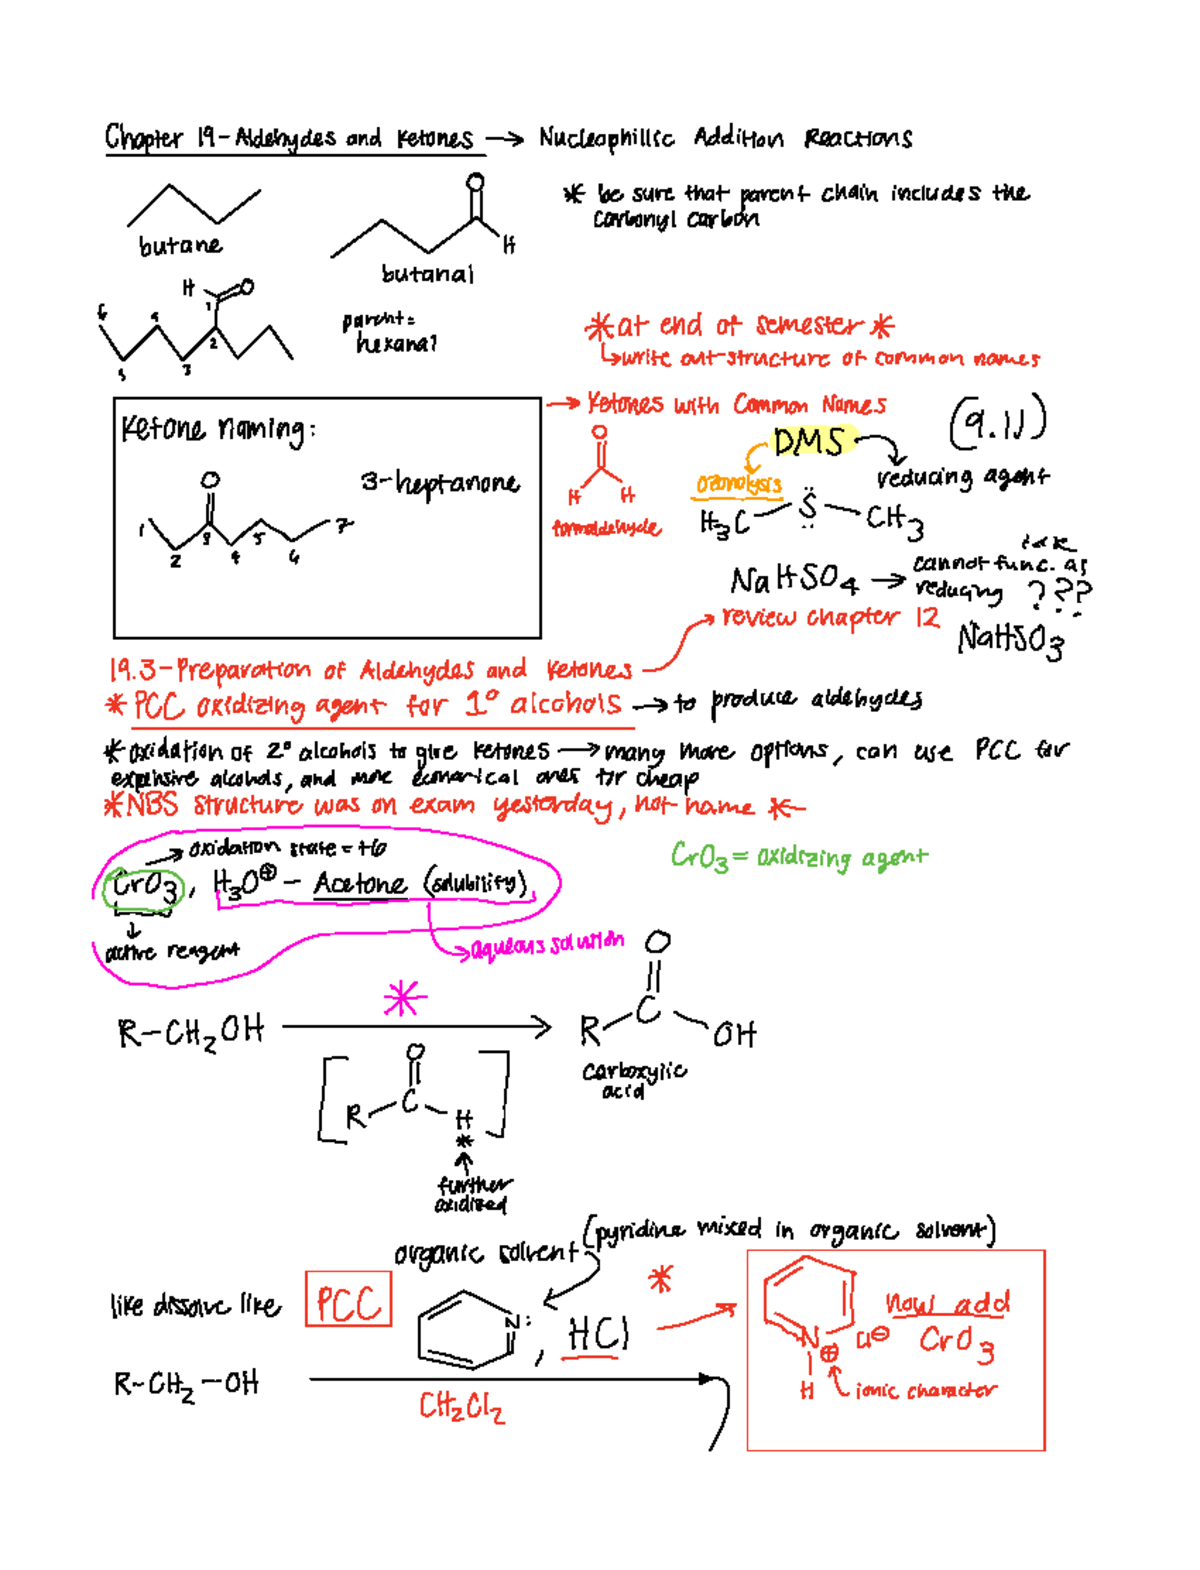 Chapter 19 - Aldehydes and Ketones → Nucleophillic Addition Reactions
* be sure that parent chain includes the
carbonyl carbon
butane
O
H
butanal
H O
1
2
3
4
5
6
parent =
hexanal
*at end of semester*
↳write out structure of common names
→ Ketones with Common Names
O
H H
formaldehyde
DMS
(9.11)
ozonolysis
reducing agent
H3C - S - CH3
Ketone naming:
3-heptanone
O
1 2 3 4 5 6 7
NaHSO4 → cannot func. as
reducing ???
NaHSO3
review chapter 12
19.3 - Preparation of Aldehydes and Ketones
* PCC oxidizing agent for 1° alcohols → to produce aldehydes
*oxidation of 2° alcohols to give ketones → many more options, can use PCC for
expensive alcohols, and more economical ones for cheap
*NBS structure was on exam yesterday, not name *
→ oxidation state = +6
CrO3 , H3O⊕ - Acetone (solubility)
CrO3 = oxidizing agent
active reagent
→aqueous solution
*
R-CH2OH
O
R C OH
carboxylic
acid
[ O
R C H ]
*
further
oxidized
(pyridine mixed in organic solvent)
organic solvent
like dissolve like
PCC
N: , HCl
*
N⊕ Cl⊖
H
now add
CrO3
ionic character
R-CH2-OH
CH2Cl2